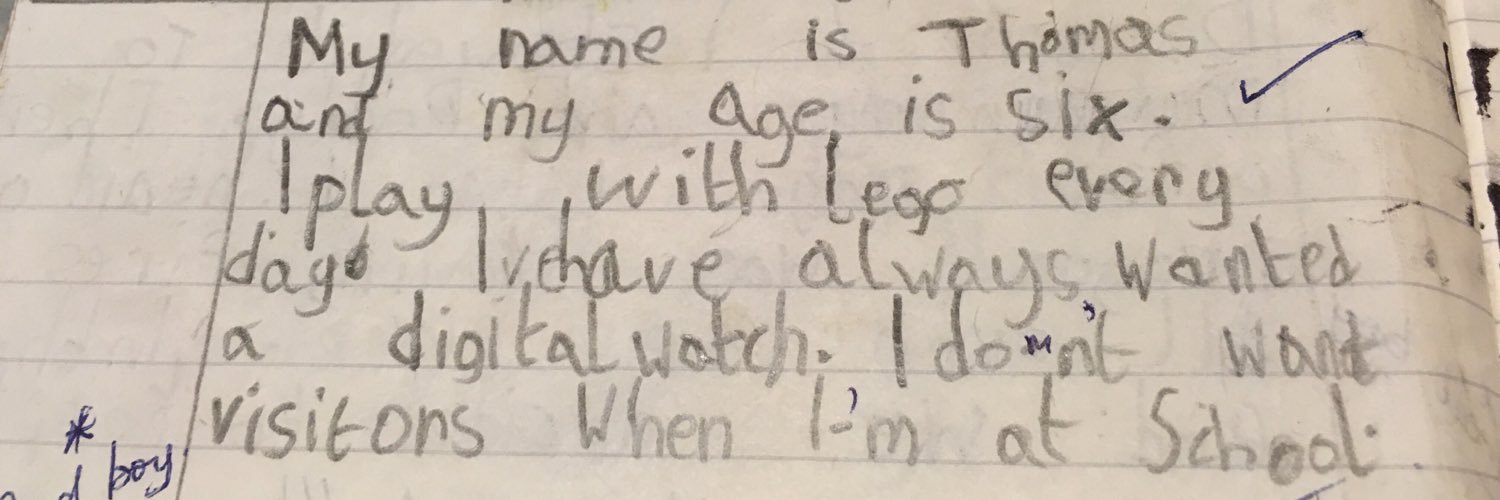 My name is Thomas
and my age is six.
I play with Lego every
day. I have always wanted
a digital watch. I don't want
visitors When I'm at School.
* boy